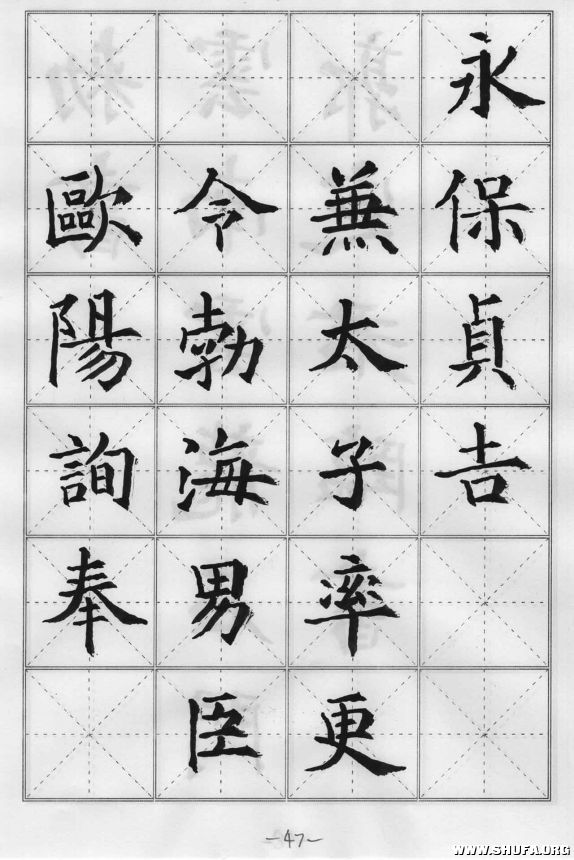 永保貞吉
兼太子率更
令勃海男臣
歐陽詢奉
-47-
WWW.SHUFA.ORG